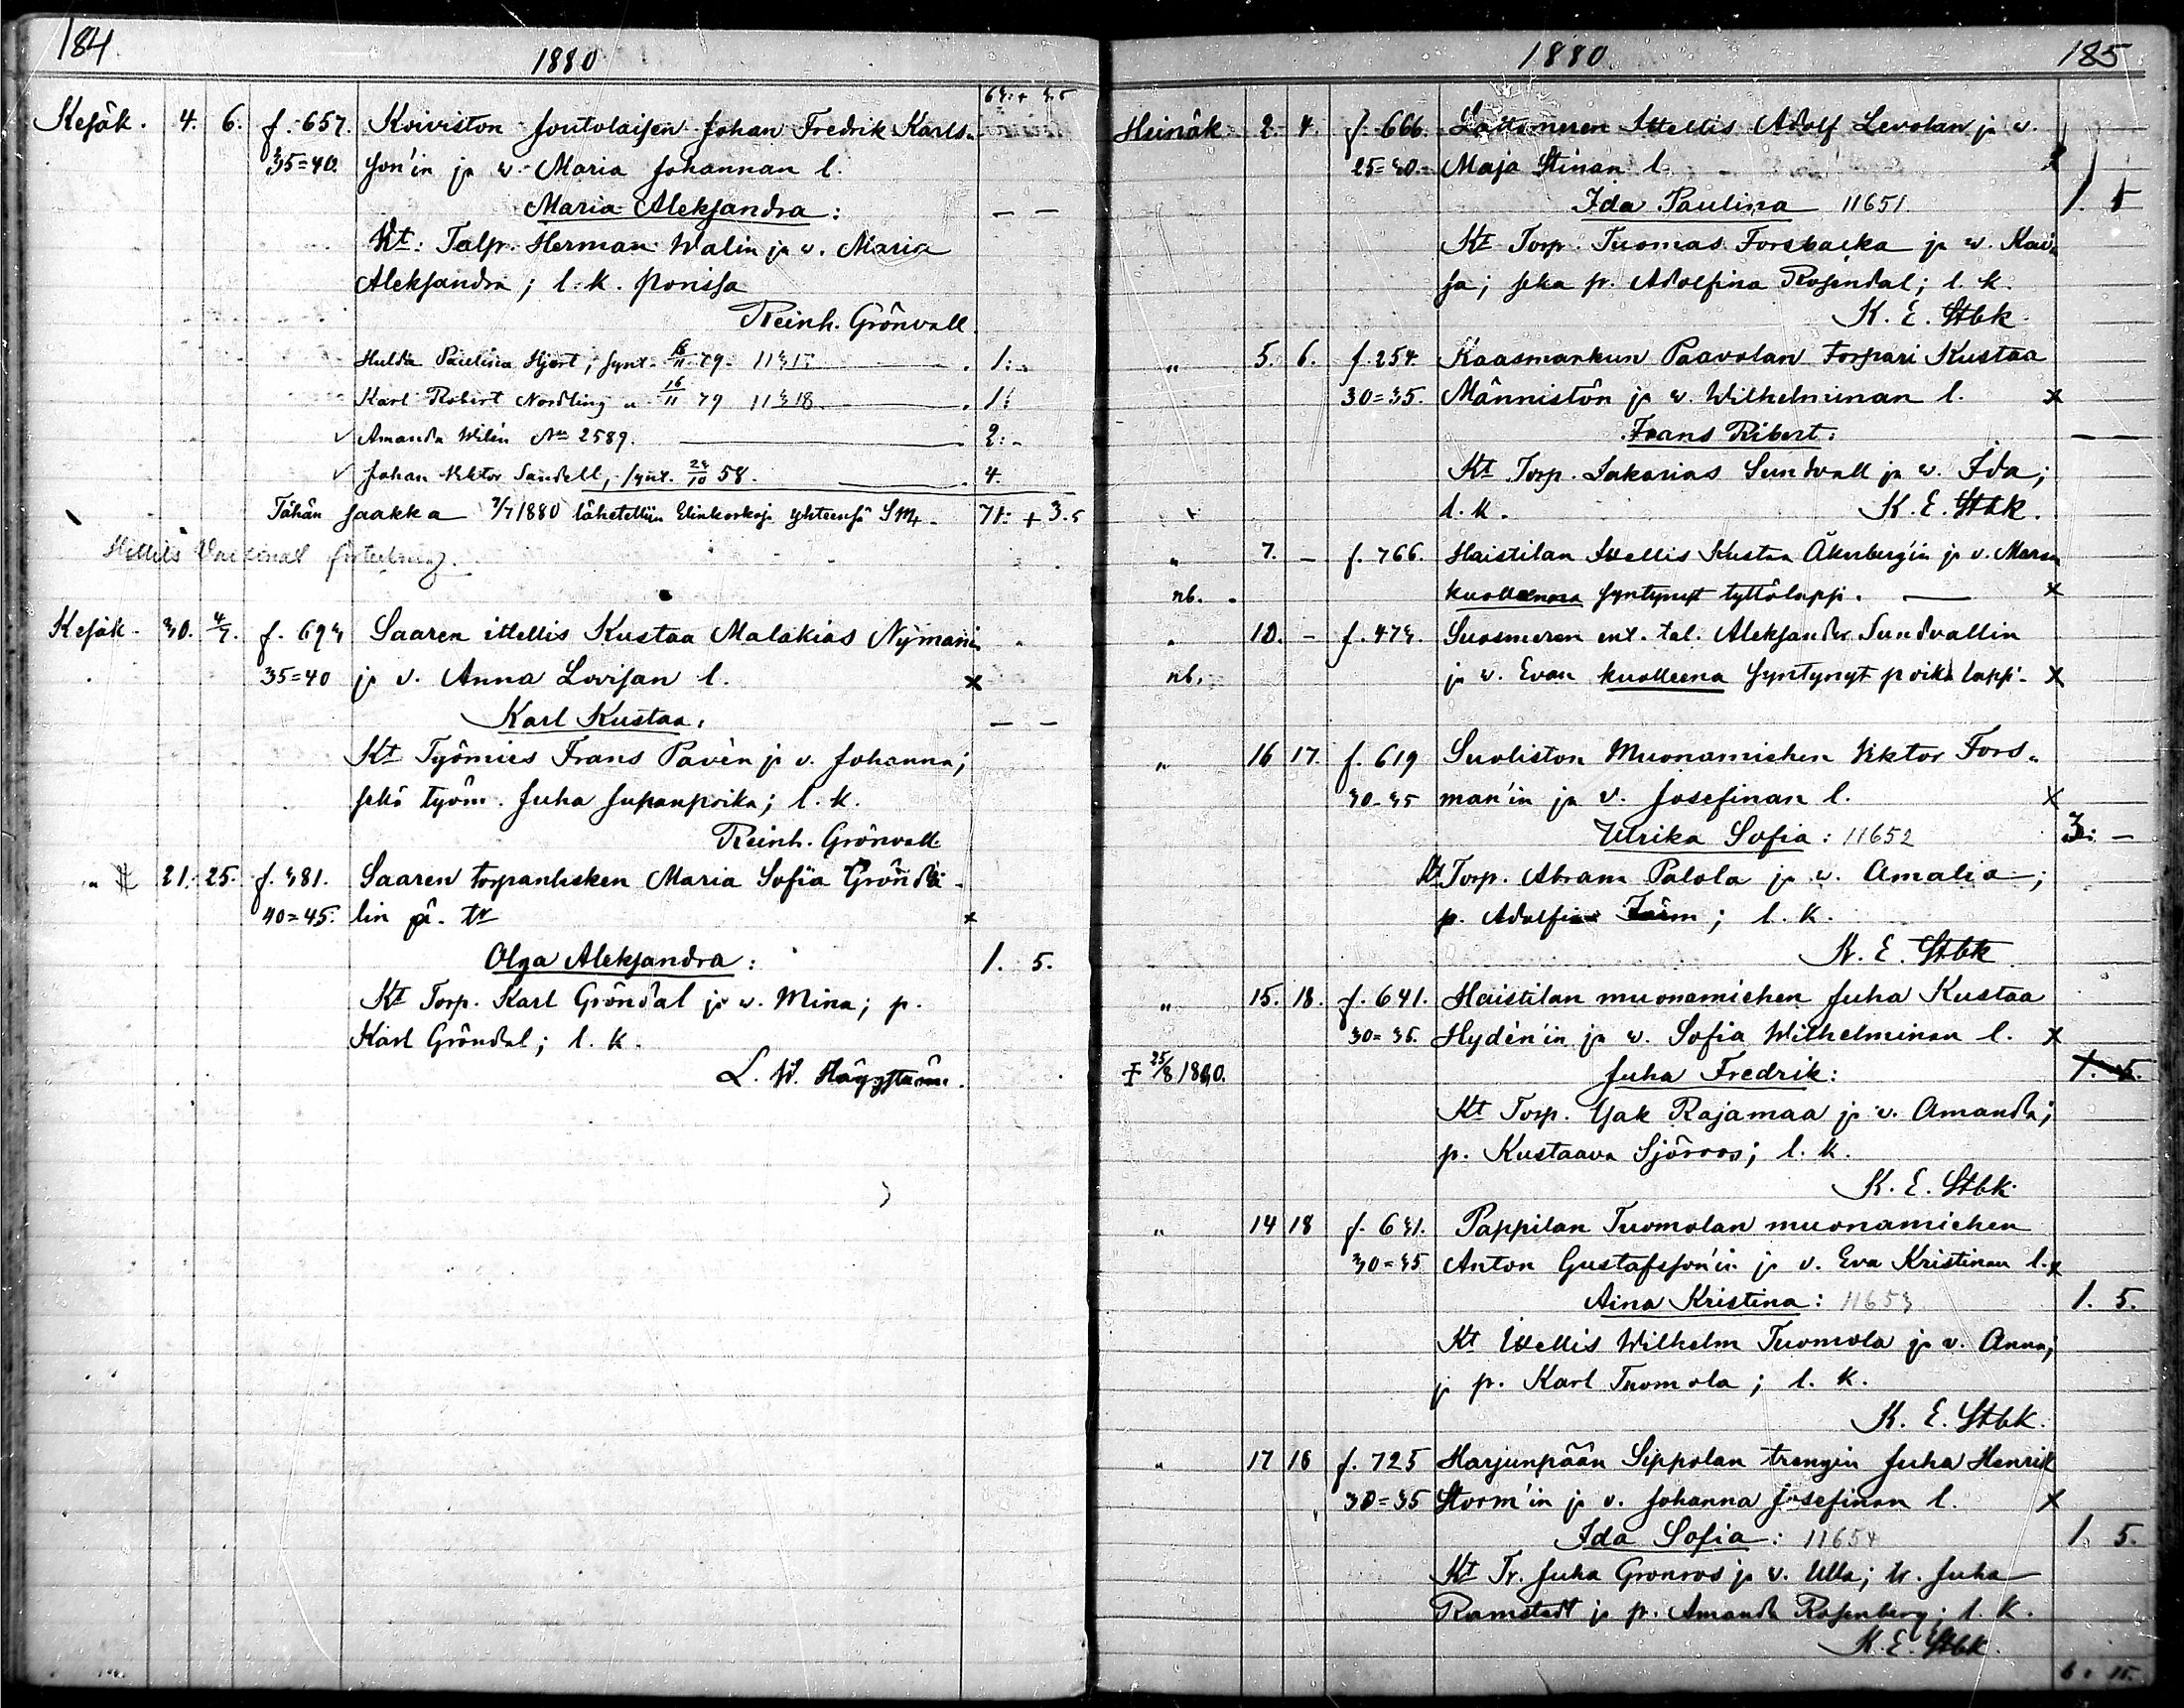 184.
1880
63:+ 35
Kesäk. 4. 6. f. 657. Koiviston Joutolaisen Johan Fredrik Karls-
35=40. son'in ja w. Maria Johannan l.
Maria Aleksandra: — —
Kt: Talp. Herman Walin ja v. Maria
Aleksandra; l. k. Porissa
Reinh. Grönvall
Hulda Paulina Hjort, synt. 79. 1: -
Karl Robert Nordling " 16/11 79 11318. 1:
✓ Amanda Wilén No 2589. 2: -
✓ Johan Viktor Sandell, synt. 24/10 58. 4.
Tähän saakka 7/7 1880 lähetettiin Elinkorkoja yhteensä SM. 71: + 3.5
Kesäk. 30. 4/7. f. 693 Saaren ittellis Kustaa Malakias Nymanin
35=40 ja v. Anna Lovisan l. x
Karl Kustaa. — —
Kt Työmies Frans Pavèn ja v. Johanna;
sekä työm. Juha Jupanpoika; l. k.
Reinh. Grönvall.
" 21. 25. f. 381. Saaren torpanlesken Maria Sofia Gröndä-
40=45. lin ä. tr x
Olga Aleksandra: 1. 5.
Kt Torp. Karl Gröndal ja w. Mina; p.
Karl Gröndal; l. k.
L. W. Häggström.
1880. 185
Heinäk. 2. 4. f. 666. Lattomeren Ittellis Adolf Levolan ja w.
25=30. Maja Stinan l. x
Ida Paulina 11651. 1. 5
Kt Torp. Tuomas Forsbacka ja w. Kai-
sa; seka p. Adolfina Rosendal; l. k.
K. E. Stbk.
" 5. 6. f. 254. Kaasmarkun Paavolan Torpari Kustaa
30=35. Männistön ja w. Wilhelminan l. x
Frans Ribert: — —
Kt Torp. Sakarias Sundvall ja w. Ida;
l. k. K. E. Stbk.
" 7. – f. 766. Haistilan Ittellis Kustaa Åkerberg'in ja v. Marian
nb. kuolleena syntynyt tyttölapsi. x
" 10. – f. 473. Suosmeren ent. tal. Aleksander Sundvallin
nb. ja w. Evan kuolleena syntynyt poika lapsi. x
" 16 17. f. 619 Suoliston Muonamiehen Viktor Fors-
30=35 man'in ja v. Josefinan l. x
Ulrika Sofia: 11652 3: –
Kt Torp. Abram Palola ja w. Amalia;
p. Adolfina; l. k.
K. E. Stbk
" 15. 18. f. 641. Haistilan muonamiehen Juha Kustaa
30=35. Hydén'in ja w. Sofia Wilhelminan l. x
‡ 25/8 1880. Juha Fredrik: 1. 5.
Kt Torp. Isak Rajamaa ja v. Amanda;
p. Kustaava Sjöroos; l. k.
K. E. Stbk.
" 14 18 f. 631. Pappilan Tuomolan muonamiehen
30=35 Anton Gustafsson'in ja v. Eva Kristinan l. x
Aina Kristina: 11653 1. 5.
Kt Ittellis Wilhelm Tuomola ja v. Anna;
ja p. Karl Tuomola; l. k.
K. E. Stbk.
" 17 18 f. 725 Harjunpään Sippolan trengin Juha Henrik
30=35 Storm'in ja v. Johanna Josefinan l. x
Ida Sofia: 11654 1. 5.
Kt Tr. Juha Gronros ja v. Ulla; tr. Juha
Ramstedt ja p. Amanda Rosenberg; l. k.
K. E. Stbk.
6. 15.